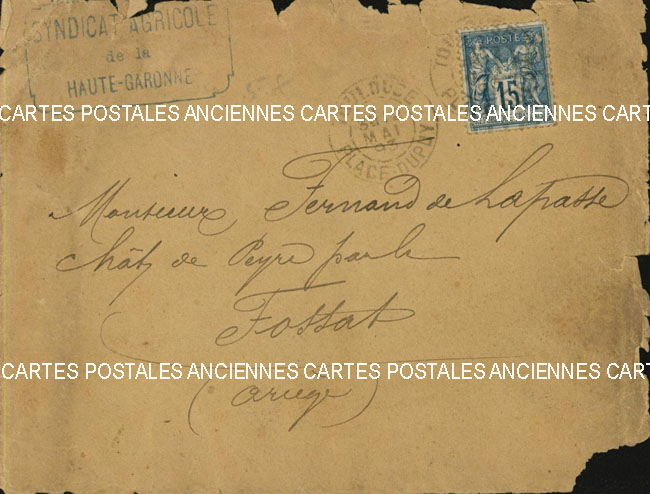 SYNDICAT AGRICOLE
de la
HAUTE-GARONNE
POSTES
15
TOULOUSE
MAI
PLACE DUPUY
CARTES POSTALES ANCIENNES CARTES POSTALES ANCIENNES CART
Monsieur Fernand de Lapasse
chât de Peyre par le
Fossat
CARTES POSTALES ANCIENNES CARTES POSTALES ANCIENNES CART
(Ariège)